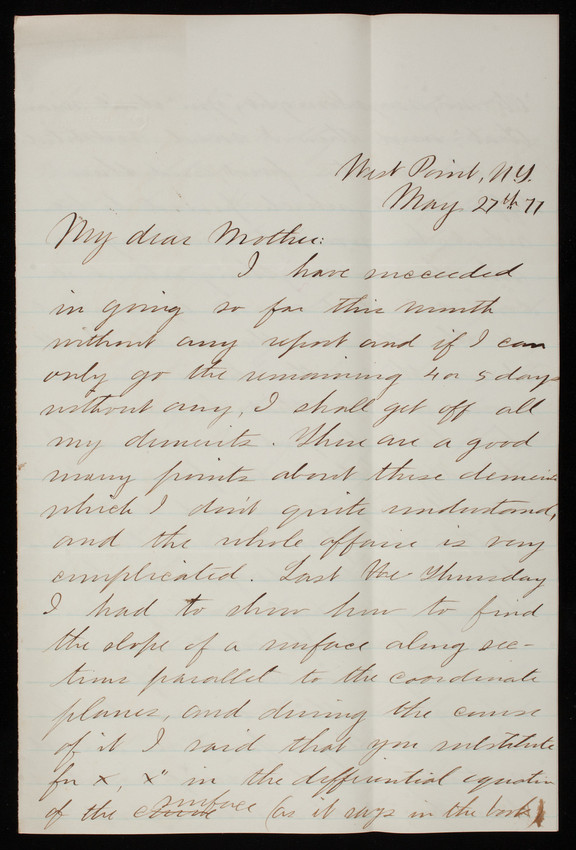 West Point, N.Y.
May 27th 71
My dear Mother:
I have succeeded
in going so far this month
without any report and if I can
only go the remaining 4 or 5 days
without any, I shall get off all
my demerits. There are a good
many points about these demerits
which I don't quite understand,
and the whole affair is very
complicated. Last Thursday
I had to show how to find
the slope of a surface along sec-
tions parallel to the coordinate
planes, and during the course
of it I said that you substitute
for x, x" in the differential equation
of the surface (as it says in the book)